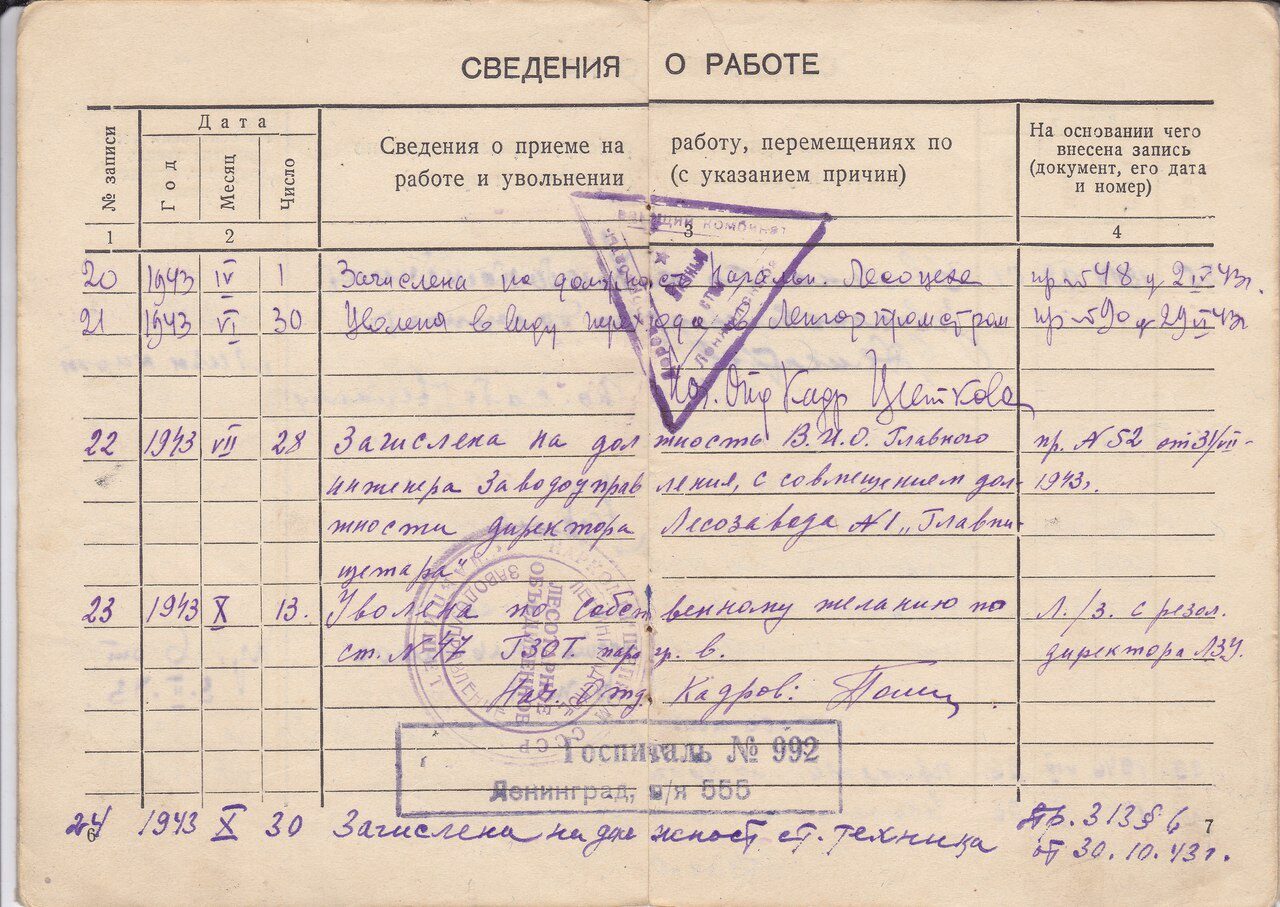 СВЕДЕНИЯ О РАБОТЕ
№ записи
Дата
Год
Месяц
Число
Сведения о приеме на работу, перемещениях по
работе и увольнении (с указанием причин)
На основании чего
внесена запись
(документ, его дата
и номер)
1 2 3 4
20 1943 IV 1 Зачислена на должность Лесоцеха пр №48 2/IV 43г.
21 1943 VI 30 Уволена в виду перехода в Ленгорпромстром пр №90 29/VI 43г
Нач. Отд Кадр Цветкова
22 1943 VII 28 Зачислена на должность В.И.О. Главного пр. №52 от 31/VII-
инженера Заводоуправления, с совмещением дол- 1943г.
жности директора Лесозавода №1 „Главпи-
щетара"
23 1943 X 13. Уволена по собственному желанию по Л./з. с резол.
ст. №47 КЗОТ парагр. в. директора ЛЗУ.
Нач. Отд. Кадров:
ЛЕСОТАРНОЕ
ОБЪЕДИНЕННОЕ
ЗАВОДОУПРАВЛЕНИЕ
Госпиталь № 992
Ленинград, п/я 555
24 1943 X 30 Зачислена на должност ст. техника Пр. 313 § 6
от 30.10.43г.
6 7